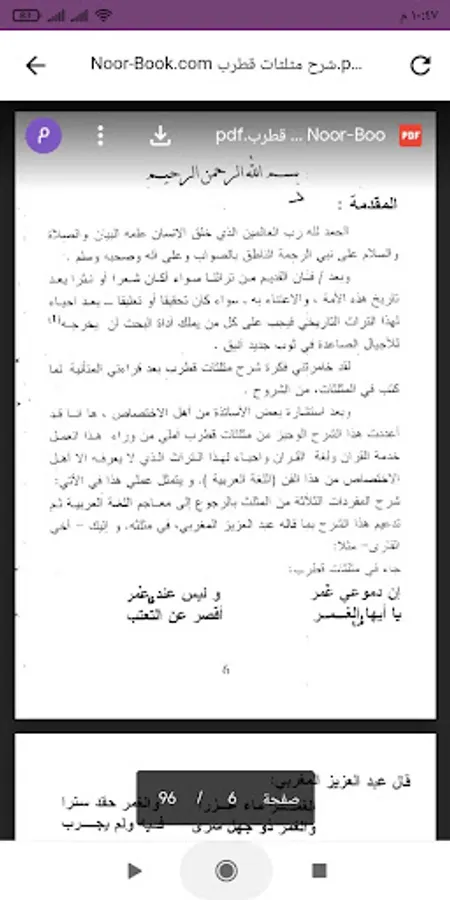 ١٠:٤٧ م
81
Noor-Book.com شرح مثلثات قطرب.p...
م
Noor-Boo ... قطرب.pdf
PDF
بسم الله الرحمن الرحيم
المقدمة :
الحمد لله رب العالمين الذي خلق الانسان علمه البيان والصلاة
والسلام على نبي الرحمة الناطق بالصواب وعلى آله وصحبه وسلم .
وبعد / فإن القديم من تراثنا سواء أكان شعرا أو نثرا يعد
تاريخ هذه الأمة ، والاعتناء به ، سواء كان تحقيقا أو تعليقا – يعد احياء
لهذا التراث التاريخي فيجب على كل من يملك أداة البحث أن يخرجه(1)
للأجيال الصاعدة في ثوب جديد أنيق .
لقد خامرتني فكرة شرح مثلثات قطرب بعد قراءتي المتأنية لما
كتب في المثلثات، من الشروح .
وبعد استشارة بعض الأساتذة من أهل الاختصاص ، ها انا قد
أعددت هذا الشرح الوجيز من مثلثات قطرب املي من وراء هذا العمل
خدمة القرآن ولغة القرآن واحياء لهذا التراث الذي لا يعرفه الا أهل
الاختصاص من هذا الفن (اللغة العربية ). و يتمثل عملي هذا في الآتي:
شرح المفردات الثلاثة من المثلث بالرجوع إلى معاجم اللغة العربية ثم
تدعيم هذا الشرح بما قاله عبد العزيز المغربي، في مثلثه، و إليك – أخي
القارئ– مثلا:
جاء في مثلثات قطرب:
إن دموعي غمر و ليس عندي غمر
يا أيها الغمر أقصر عن التعتب
6
قال عبد العزيز المغربي:
ماء والغمر حقد سترا
والغمر ذو جهل سرى فيه ولم يجرب
صفحة 6 / 96